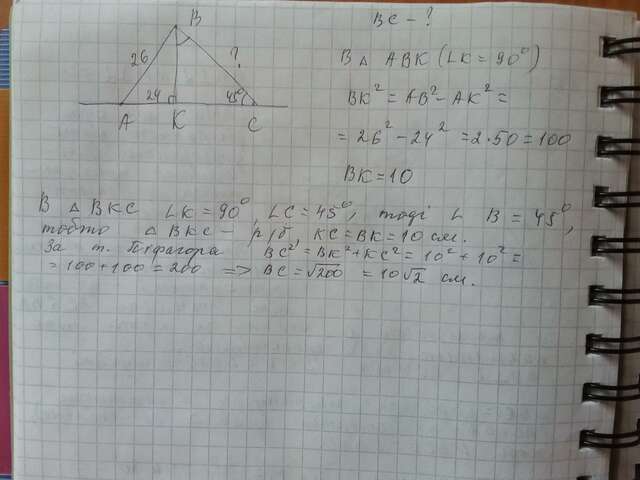 BC - ?
B
26
?
24
45°
A
K
C
В △ ABK (∠K = 90°)
BK² = AB² - AK² =
= 26² - 24² = 2·50 = 100
BK = 10
В △ BKC ∠K = 90°, ∠C = 45°, тоді ∠ B = 45°,
тобто △ BKC - р/б, KC = BK = 10 см.
За т. Піфагора BC² = BK² + KC² = 10² + 10² =
= 100 + 100 = 200 => BC = √200 = 10√2 см.